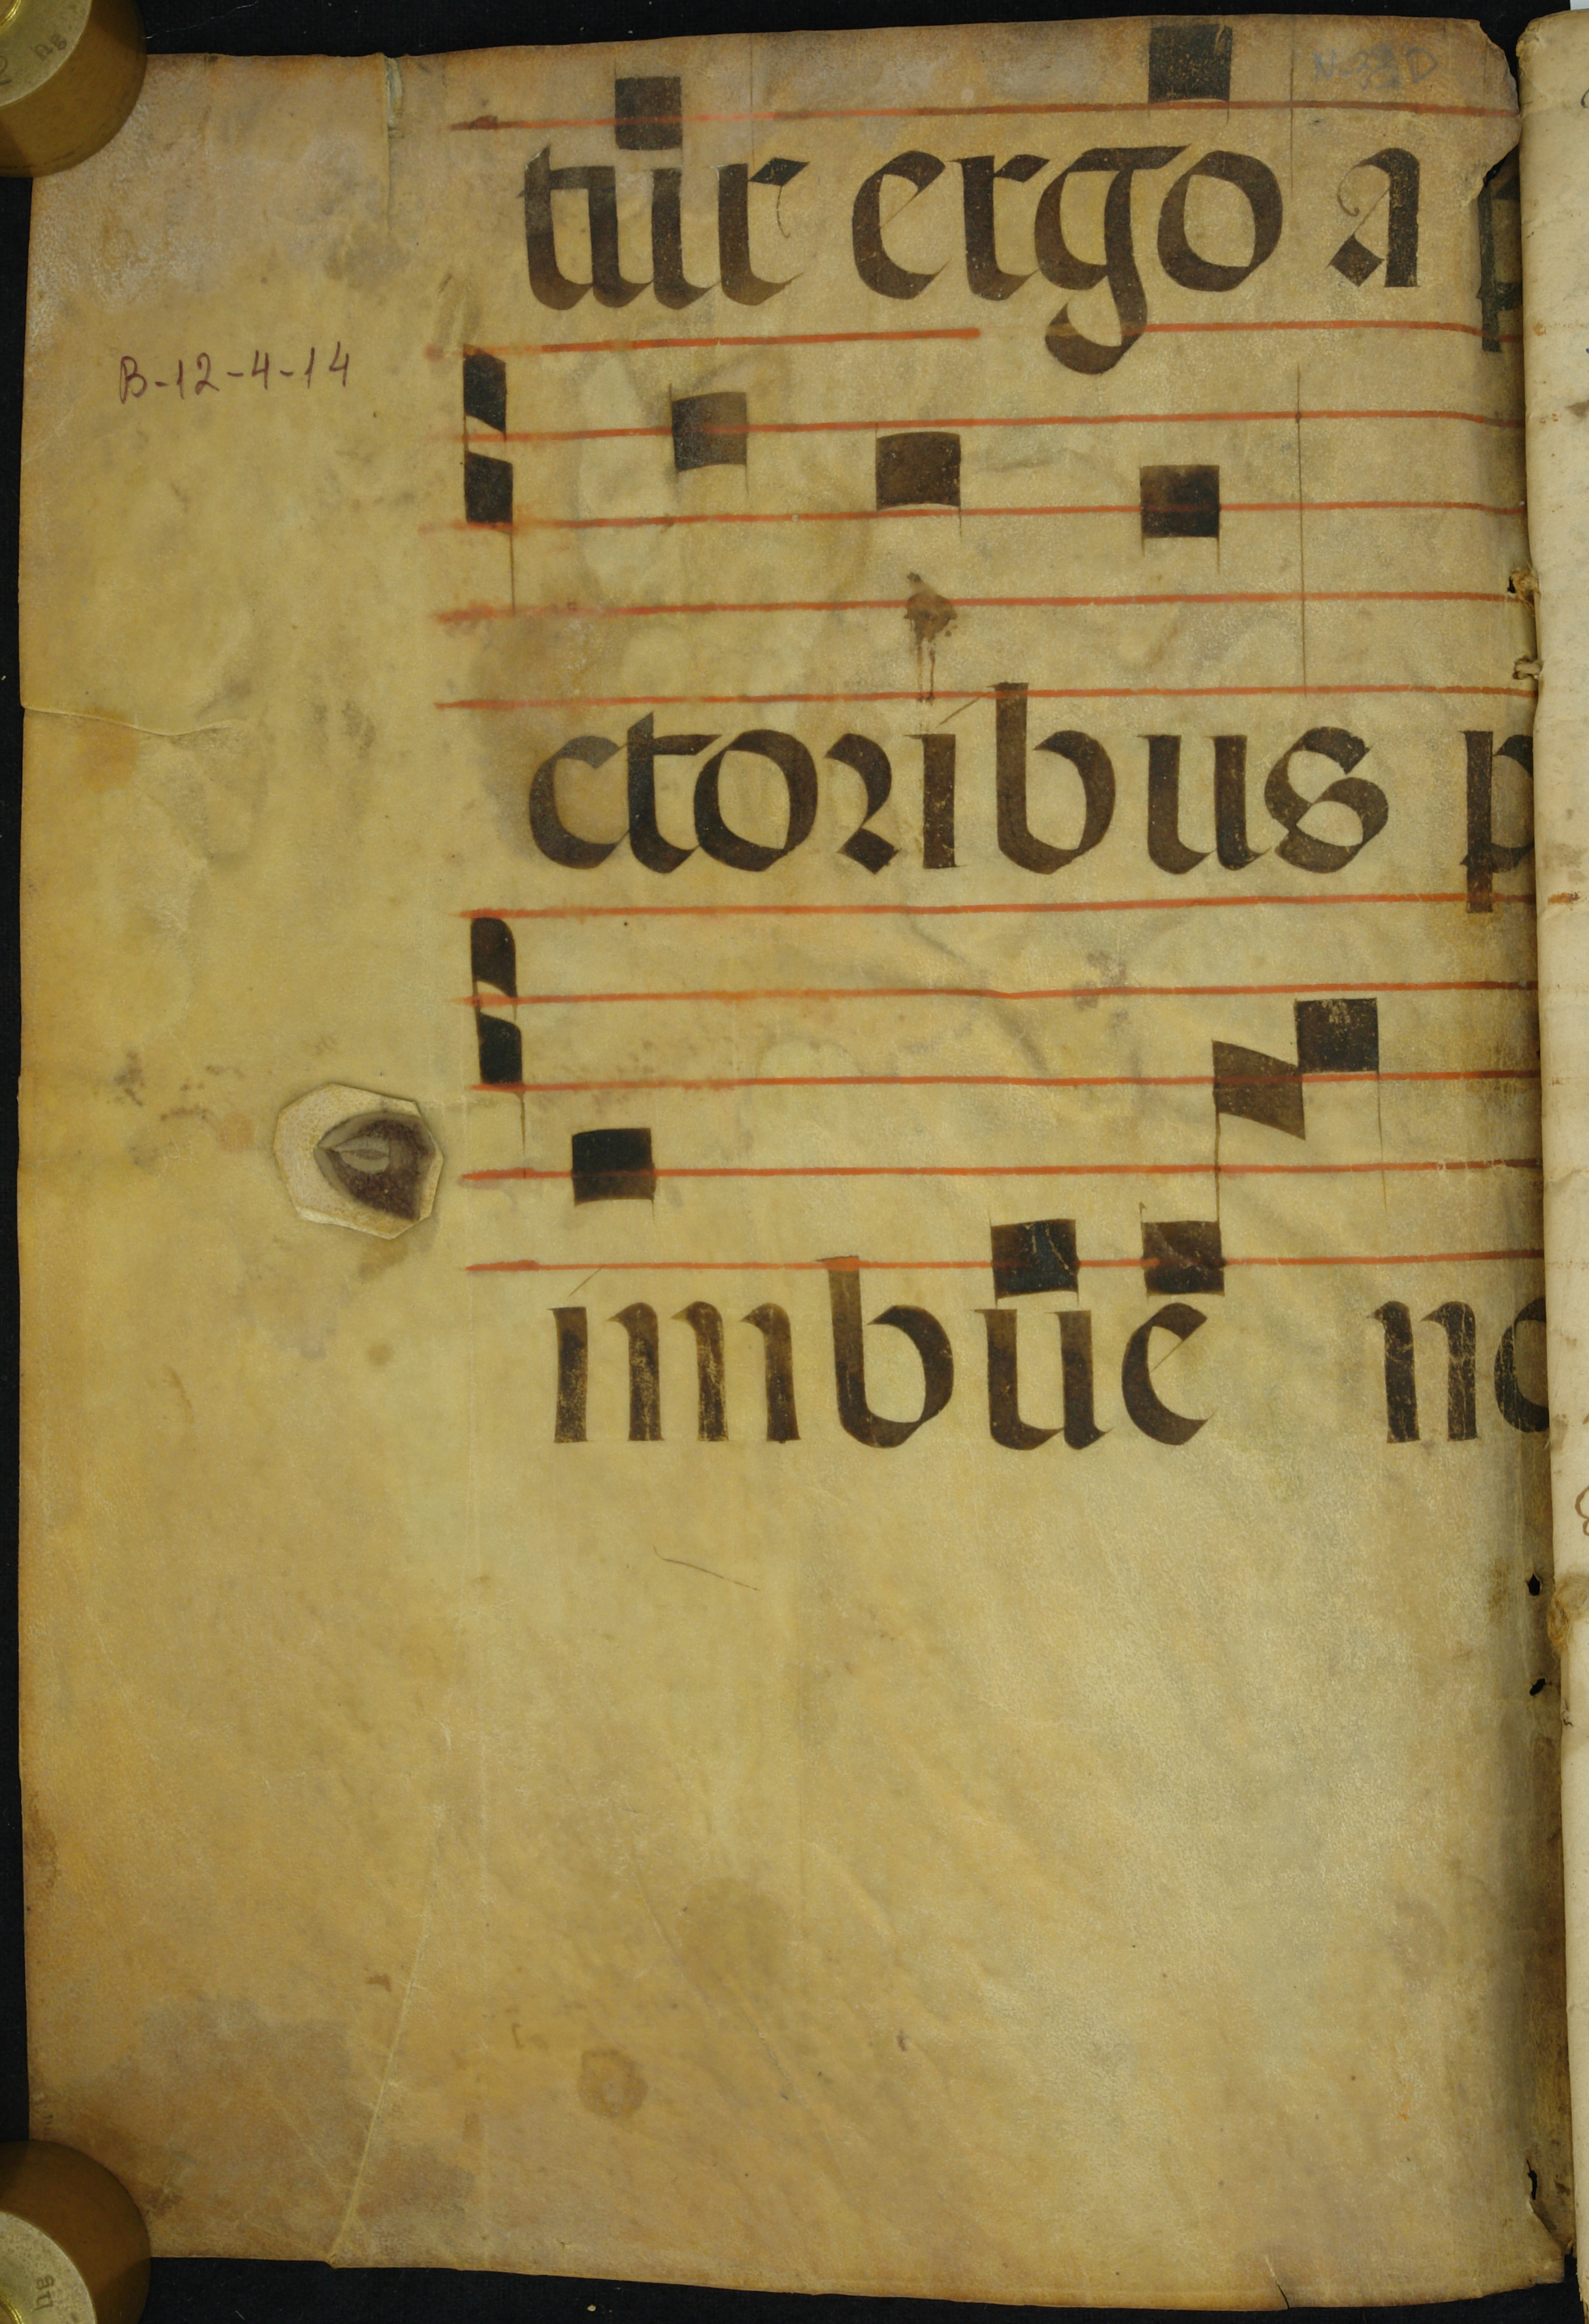 tur ergo a p
B-12-4-14
ctoribus p
imbue no